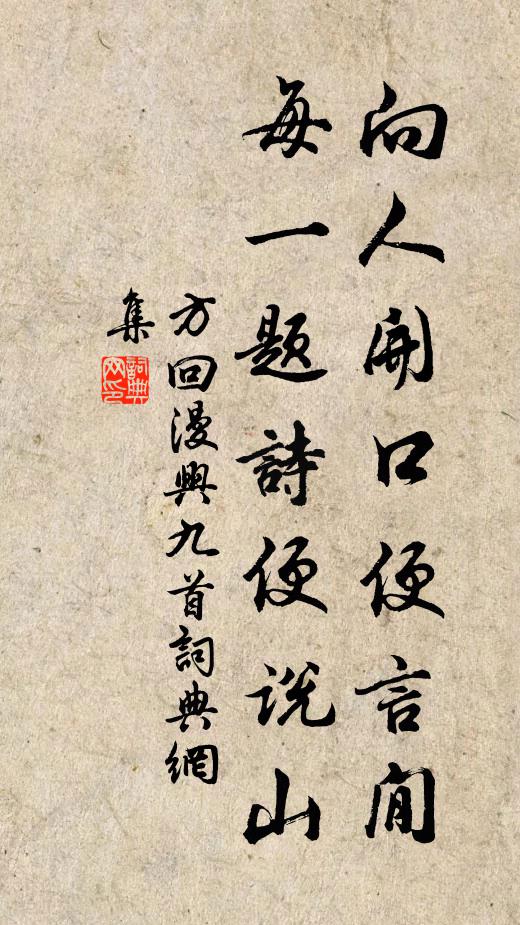 向人開口便言閒
每一題詩便説山
方回漫興九首詞典網
集
詞典
网印